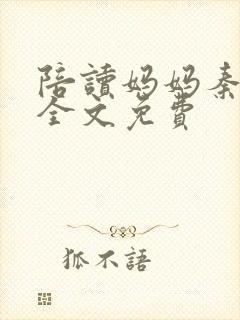 陪讀妈妈秦
全文免費
狐不語